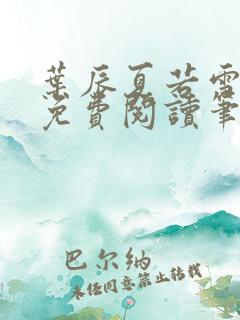 葉辰夏若雪
免費閱讀筆
巴尔纳
未经同意禁止转载